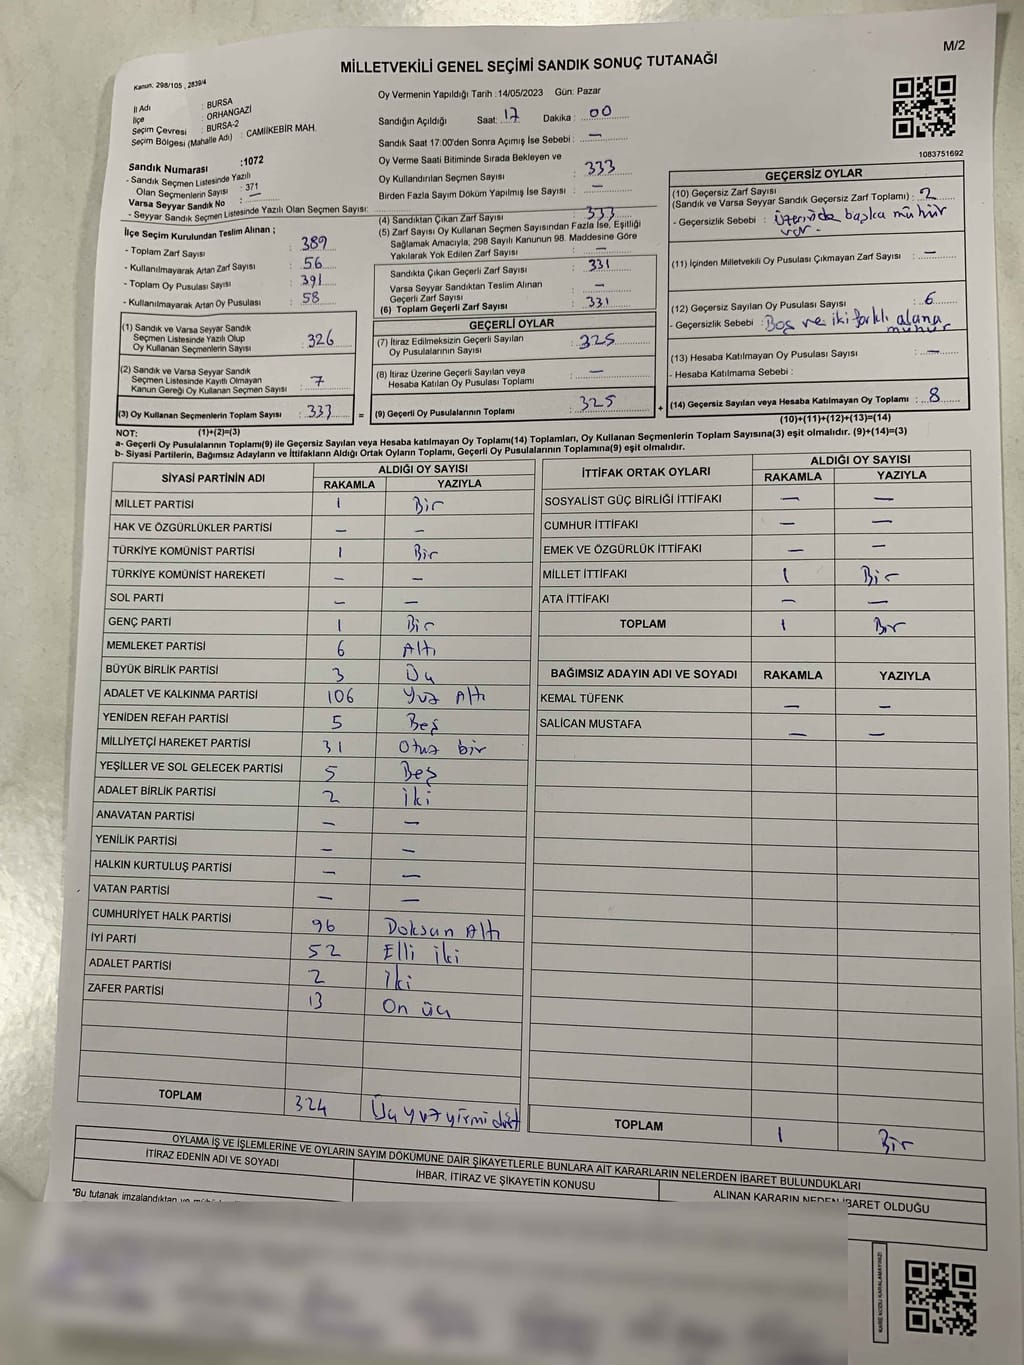 M/2
MİLLETVEKİLİ GENEL SEÇİMİ SANDIK SONUÇ TUTANAĞI
Kanun. 298/105 , 2839/4
İl Adı : BURSA
İlçe : ORHANGAZİ
Seçim Çevresi : BURSA-2
Seçim Bölgesi (Mahalle Adı) : CAMİİKEBİR MAH.
Sandık Numarası :1072
- Sandık Seçmen Listesinde Yazılı
Olan Seçmenlerin Sayısı : 371
Varsa Seyyar Sandık No : —
- Seyyar Sandık Seçmen Listesinde Yazılı Olan Seçmen Sayısı:
Oy Vermenin Yapıldığı Tarih :14/05/2023 Gün: Pazar
Sandığın Açıldığı Saat: 17 Dakika : 00
Sandık Saat 17:00'den Sonra Açılmış İse Sebebi : —
Oy Verme Saati Bitiminde Sırada Bekleyen ve
Oy Kullandırılan Seçmen Sayısı : 333
Birden Fazla Sayım Döküm Yapılmış İse Sayısı : —
1083751692
İlçe Seçim Kurulundan Teslim Alınan ;
- Toplam Zarf Sayısı : 389
- Kullanılmayarak Artan Zarf Sayısı : 56
- Toplam Oy Pusulası Sayısı : 391
- Kullanılmayarak Artan Oy Pusulası : 58
(1) Sandık ve Varsa Seyyar Sandık
Seçmen Listesinde Yazılı Olup
Oy Kullanan Seçmenlerin Sayısı : 326
(2) Sandık ve Varsa Seyyar Sandık
Seçmen Listesinde Kayıtlı Olmayan
Kanun Gereği Oy Kullanan Seçmen Sayısı : 7
(3) Oy Kullanan Seçmenlerin Toplam Sayısı : 333 =
(1)+(2)=(3)
(4) Sandıktan Çıkan Zarf Sayısı : 333
(5) Zarf Sayısı Oy Kullanan Seçmen Sayısından Fazla İse, Eşitliği
Sağlamak Amacıyla, 298 Sayılı Kanunun 98. Maddesine Göre
Yakılarak Yok Edilen Zarf Sayısı : —
Sandıkta Çıkan Geçerli Zarf Sayısı : 331
Varsa Seyyar Sandıktan Teslim Alınan
Geçerli Zarf Sayısı : —
(6) Toplam Geçerli Zarf Sayısı : 331
GEÇERLİ OYLAR
(7) İtiraz Edilmeksizin Geçerli Sayılan
Oy Pusulalarının Sayısı : 325
(8) İtiraz Üzerine Geçerli Sayılan veya
Hesaba Katılan Oy Pusulası Toplamı : —
(9) Geçerli Oy Pusulalarının Toplamı : 325 +
GEÇERSİZ OYLAR
(10) Geçersiz Zarf Sayısı
(Sandık ve Varsa Seyyar Sandık Geçersiz Zarf Toplamı) : 2
- Geçersizlik Sebebi : Üzerinde başka mühür
var.
(11) İçinden Milletvekili Oy Pusulası Çıkmayan Zarf Sayısı : —
(12) Geçersiz Sayılan Oy Pusulası Sayısı : 6
- Geçersizlik Sebebi : Boş ve iki farklı alana
mühür
(13) Hesaba Katılmayan Oy Pusulası Sayısı : —
- Hesaba Katılmama Sebebi :
(14) Geçersiz Sayılan veya Hesaba Katılmayan Oy Toplamı : 8
(10)+(11)+(12)+(13)=(14)
NOT:
a- Geçerli Oy Pusulalarının Toplamı(9) ile Geçersiz Sayılan veya Hesaba katılmayan Oy Toplamı(14) Toplamları, Oy Kullanan Seçmenlerin Toplam Sayısına(3) eşit olmalıdır. (9)+(14)=(3)
b- Siyasi Partilerin, Bağımsız Adayların ve İttifakların Aldığı Ortak Oyların Toplamı, Geçerli Oy Pusulalarının Toplamına(9) eşit olmalıdır.
SİYASİ PARTİNİN ADI ALDIĞI OY SAYISI
RAKAMLA YAZIYLA
MİLLET PARTİSİ 1 Bir
HAK VE ÖZGÜRLÜKLER PARTİSİ — —
TÜRKİYE KOMÜNİST PARTİSİ 1 Bir
TÜRKİYE KOMÜNİST HAREKETİ — —
SOL PARTİ — —
GENÇ PARTİ 1 Bir
MEMLEKET PARTİSİ 6 Altı
BÜYÜK BİRLİK PARTİSİ 3 Üç
ADALET VE KALKINMA PARTİSİ 106 Yüz Altı
YENİDEN REFAH PARTİSİ 5 Beş
MİLLİYETÇİ HAREKET PARTİSİ 31 Otuz bir
YEŞİLLER VE SOL GELECEK PARTİSİ 5 Beş
ADALET BİRLİK PARTİSİ 2 İki
ANAVATAN PARTİSİ — —
YENİLİK PARTİSİ — —
HALKIN KURTULUŞ PARTİSİ — —
VATAN PARTİSİ — —
CUMHURİYET HALK PARTİSİ 96 Doksan Altı
İYİ PARTİ 52 Elli iki
ADALET PARTİSİ 2 İki
ZAFER PARTİSİ 13 On üç
TOPLAM 324 Üç yüz yirmi dört
İTTİFAK ORTAK OYLARI ALDIĞI OY SAYISI
RAKAMLA YAZIYLA
SOSYALİST GÜÇ BİRLİĞİ İTTİFAKI — —
CUMHUR İTTİFAKI — —
EMEK VE ÖZGÜRLÜK İTTİFAKI — —
MİLLET İTTİFAKI 1 Bir
ATA İTTİFAKI — —
TOPLAM 1 Bir
BAĞIMSIZ ADAYIN ADI VE SOYADI RAKAMLA YAZIYLA
KEMAL TÜFENK — —
SALİCAN MUSTAFA — —
TOPLAM 1 Bir
OYLAMA İŞ VE İŞLEMLERİNE VE OYLARIN SAYIM DÖKÜMÜNE DAİR ŞİKAYETLERLE BUNLARA AİT KARARLARIN NELERDEN İBARET BULUNDUKLARI
İTİRAZ EDENİN ADI VE SOYADI İHBAR, İTİRAZ VE ŞİKAYETİN KONUSU ALINAN KARARIN NEDEN İBARET OLDUĞU
*Bu tutanak imzalandıktan ve
KARE KODU KARALAMAYINIZ!